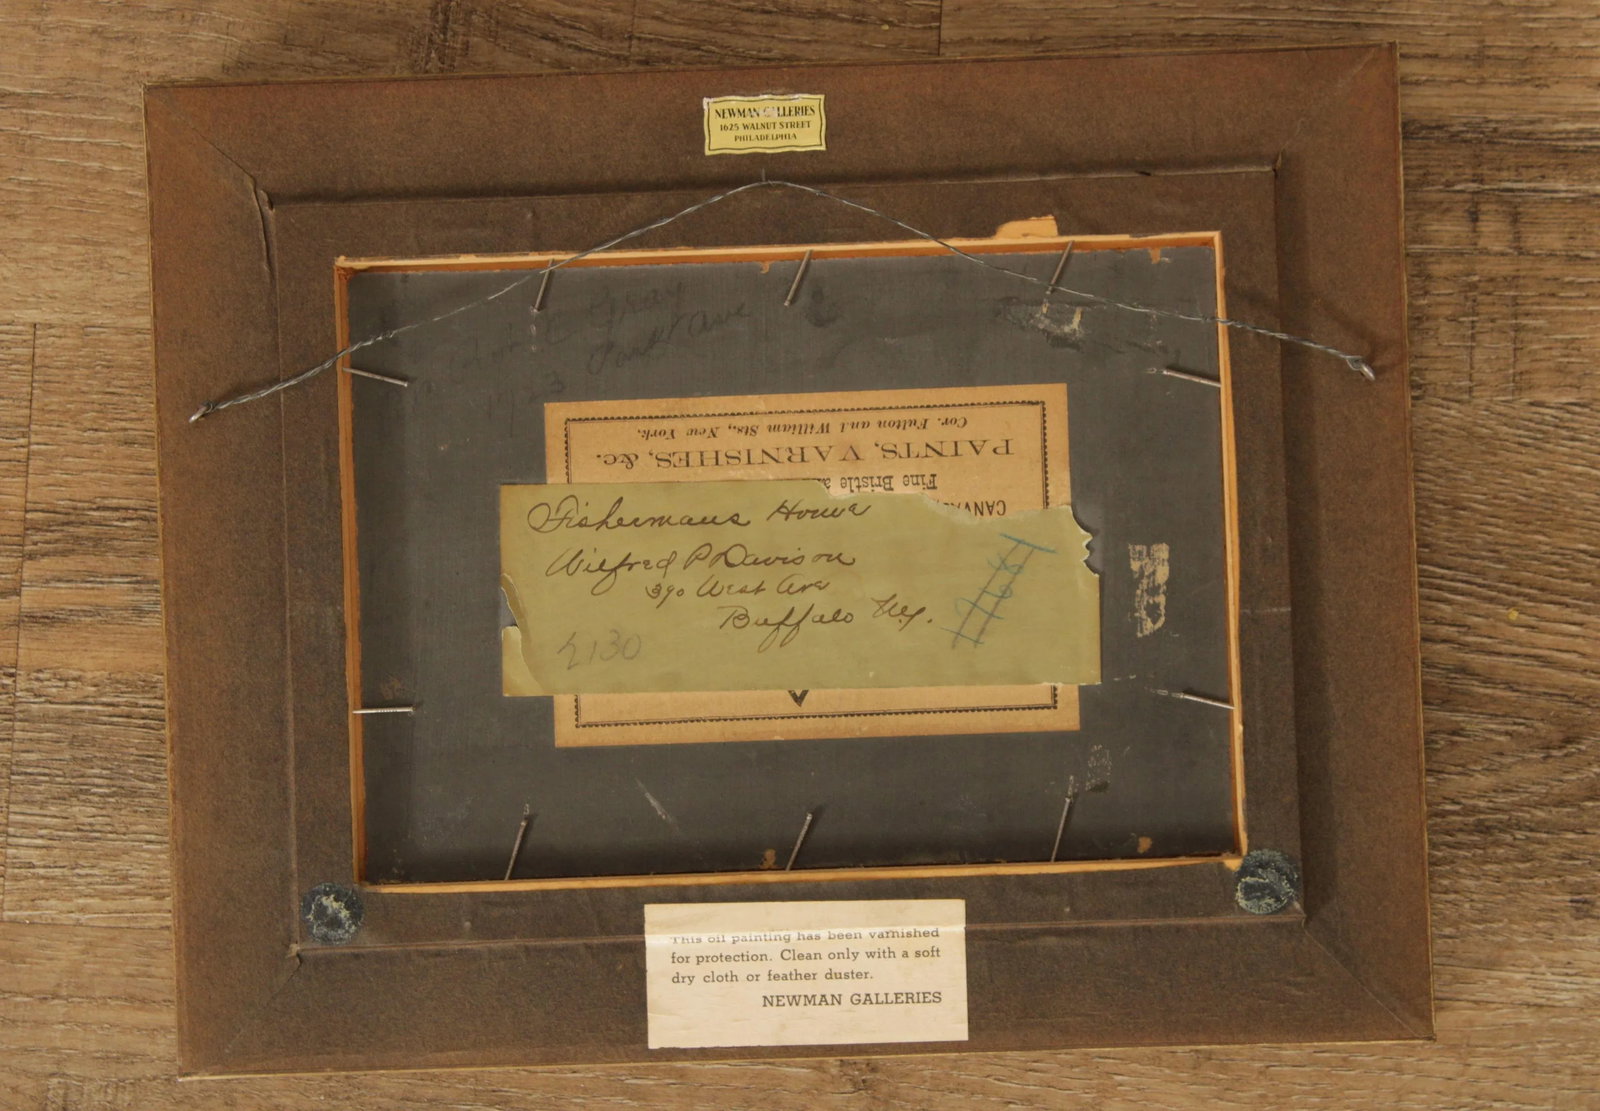 NEWMAN GALLERIES
1625 WALNUT STREET
PHILADELPHIA
Gray
Park Ave
Cor. Fulton and William Sts., New York.
PAINTS, VARNISHES, &c.
Fine Bristle
CANVAS
Fishermans House
Wilfred P Davison
390 West Ave
Buffalo N.Y.
2130
This oil painting has been varnished
for protection. Clean only with a soft
dry cloth or feather duster.
NEWMAN GALLERIES